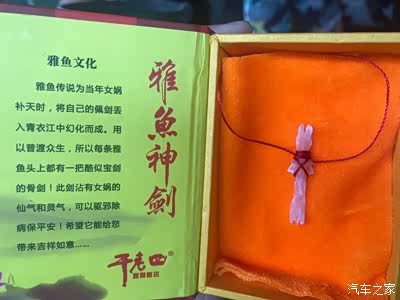 雅鱼文化
雅鱼传说为当年女娲
补天时，将自己的佩剑丢
入青衣江中幻化而成。用
以普渡众生，所以每条雅
鱼头上都有一把酷似宝剑
的骨剑！此剑沾有女娲的
仙气和灵气，可以驱邪除
病保平安！希望它能给您
带来吉祥如意……
雅魚神劍
干老四
雅鱼饭店
汽车之家